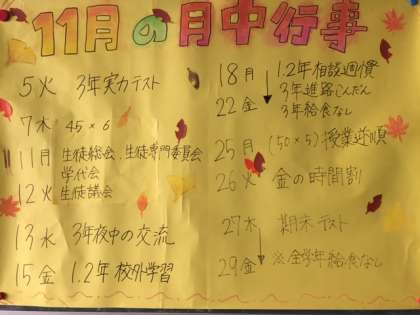 11月の月中行事
5 火 3年実力テスト
7 木 45×6
11月 生徒総会、生徒専門委員会
学代会
12火 生徒議会
13水 3年夜中の交流
15金 1.2年校外学習
18月 1.2年相談週慣
3年進路しんだん
22金 3年給食なし
25月 (50×5)授業逆順
26火 金の時間割
27水 期末テスト
29金 ※全学年給食なし